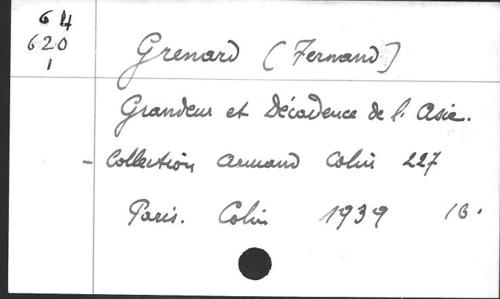 64
620
1
Grenard (Fernand)
Grandeur et Décadence de l'Asie.
- Collection Armand Colin 227
Paris. Colin 1939 16.